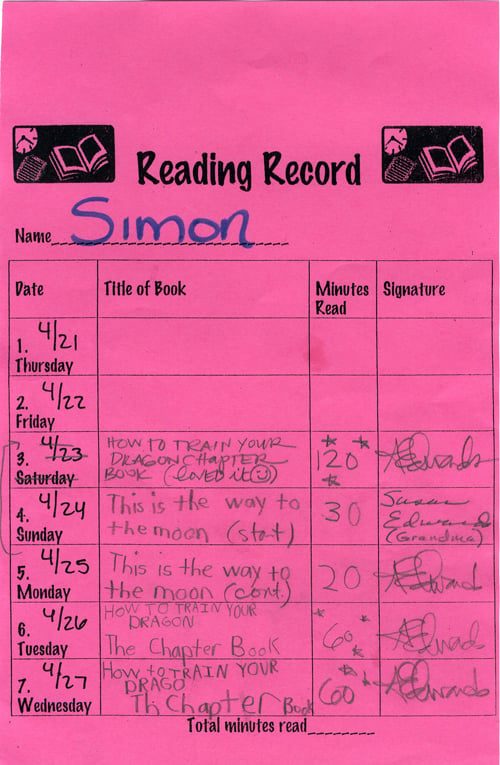 Reading Record
Name Simon
Date Title of Book Minutes Read Signature
4/21
1. Thursday
4/22
2. Friday
4/23
3. Saturday
HOW TO TRAIN YOUR
DRAGON CHAPTER
BOOK (loved it☺)
120
Edwards
4/24
4. Sunday
This is the way to
the moon (start)
30
Susan
Edwards
(Grandma)
4/25
5. Monday
This is the way to
the moon (cont.)
20
Edwards
4/26
6. Tuesday
HOW TO TRAIN YOUR
DRAGON
The Chapter Book
60
Edwards
4/27
7. Wednesday
HOW to TRAIN YOUR
DRAGO
Th Chapter Book
60
Edwards
Total minutes read